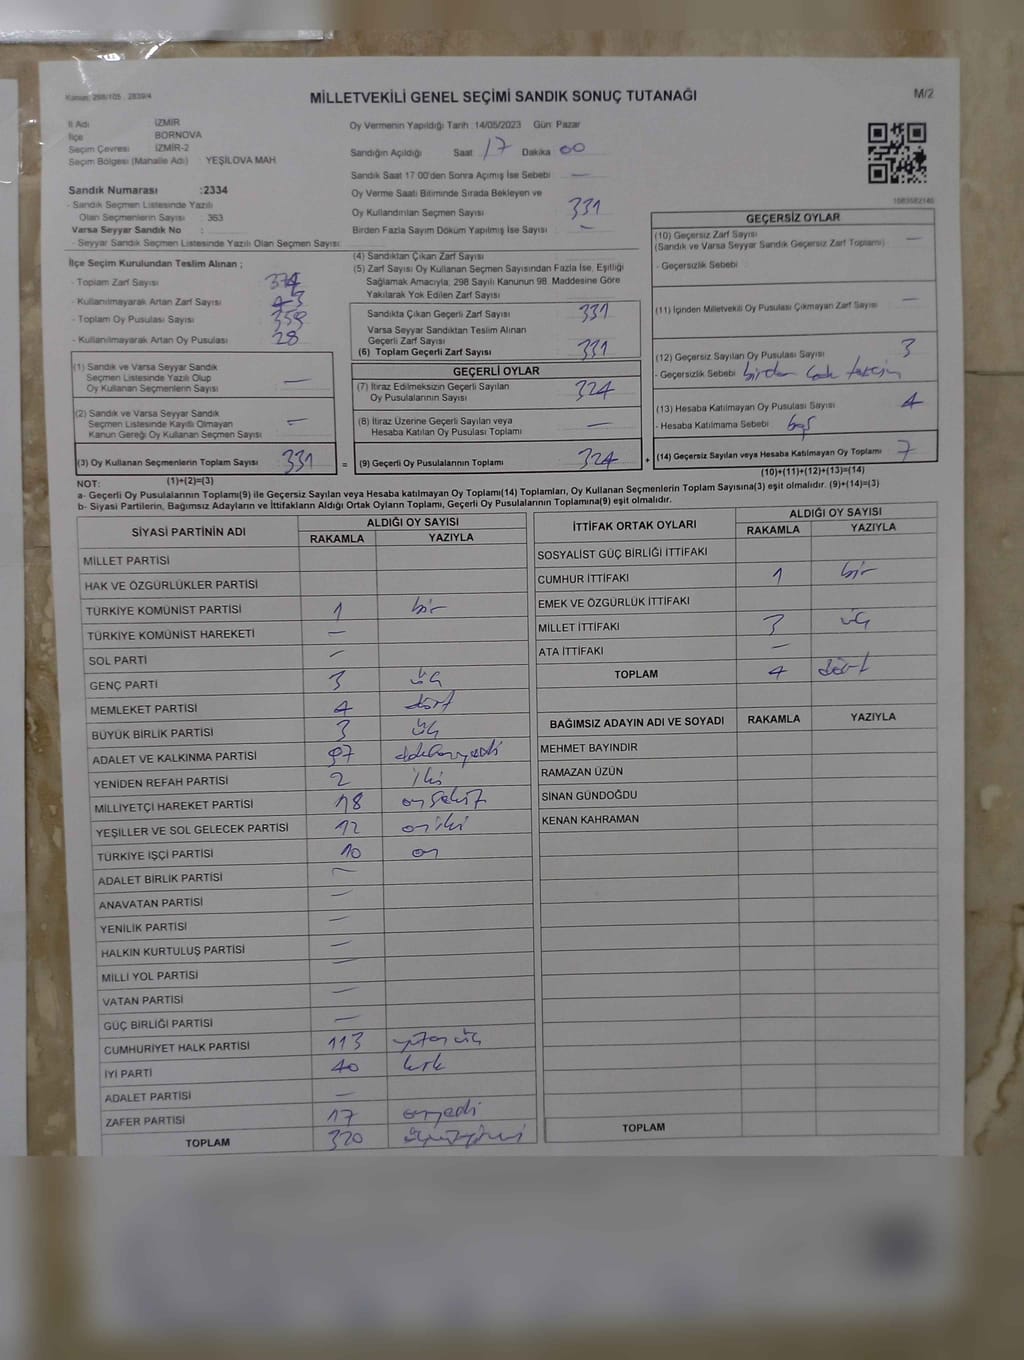 Kanun: 298/105 , 2839/4
MİLLETVEKİLİ GENEL SEÇİMİ SANDIK SONUÇ TUTANAĞI
M/2
İl Adı İZMİR
İlçe BORNOVA
Seçim Çevresi İZMİR-2
Seçim Bölgesi (Mahalle Adı) YEŞİLOVA MAH.
Oy Vermenin Yapıldığı Tarih :14/05/2023 Gün: Pazar
Sandığın Açıldığı Saat 17 Dakika 00
Sandık Saat 17:00'den Sonra Açımış İse Sebebi —
Sandık Numarası :2334
- Sandık Seçmen Listesinde Yazılı
Olan Seçmenlerin Sayısı : 363
Varsa Seyyar Sandık No :
- Seyyar Sandık Seçmen Listesinde Yazılı Olan Seçmen Sayısı :
Oy Verme Saati Bitiminde Sırada Bekleyen ve
Oy Kullandırılan Seçmen Sayısı 331
Birden Fazla Sayım Döküm Yapılmış İse Sayısı —
İlçe Seçim Kurulundan Teslim Alınan ;
- Toplam Zarf Sayısı 374
- Kullanılmayarak Artan Zarf Sayısı 43
- Toplam Oy Pusulası Sayısı 359
- Kullanılmayarak Artan Oy Pusulası 28
(1) Sandık ve Varsa Seyyar Sandık
Seçmen Listesinde Yazılı Olup
Oy Kullanan Seçmenlerin Sayısı —
(2) Sandık ve Varsa Seyyar Sandık
Seçmen Listesinde Kayıtlı Olmayan
Kanun Gereği Oy Kullanan Seçmen Sayısı —
(3) Oy Kullanan Seçmenlerin Toplam Sayısı 331 =
(1)+(2)=(3)
(4) Sandıktan Çıkan Zarf Sayısı
(5) Zarf Sayısı Oy Kullanan Seçmen Sayısından Fazla İse, Eşitliği
Sağlamak Amacıyla, 298 Sayılı Kanunun 98. Maddesine Göre
Yakılarak Yok Edilen Zarf Sayısı
Sandıkta Çıkan Geçerli Zarf Sayısı 331
Varsa Seyyar Sandıktan Teslim Alınan
Geçerli Zarf Sayısı
(6) Toplam Geçerli Zarf Sayısı 331
GEÇERLİ OYLAR
(7) İtiraz Edilmeksizin Geçerli Sayılan
Oy Pusulalarının Sayısı 324
(8) İtiraz Üzerine Geçerli Sayılan veya
Hesaba Katılan Oy Pusulası Toplamı —
(9) Geçerli Oy Pusulalarının Toplamı 324 +
1083582140
GEÇERSİZ OYLAR
(10) Geçersiz Zarf Sayısı —
(Sandık ve Varsa Seyyar Sandık Geçersiz Zarf Toplamı)
- Geçersizlik Sebebi
(11) İçinden Milletvekili Oy Pusulası Çıkmayan Zarf Sayısı —
(12) Geçersiz Sayılan Oy Pusulası Sayısı 3
- Geçersizlik Sebebi birden çok
(13) Hesaba Katılmayan Oy Pusulası Sayısı 4
- Hesaba Katılmama Sebebi boş
(14) Geçersiz Sayılan veya Hesaba Katılmayan Oy Toplamı 7
(10)+(11)+(12)+(13)=(14)
NOT:
a- Geçerli Oy Pusulalarının Toplamı(9) ile Geçersiz Sayılan veya Hesaba katılmayan Oy Toplamı(14) Toplamları, Oy Kullanan Seçmenlerin Toplam Sayısına(3) eşit olmalıdır. (9)+(14)=(3)
b- Siyasi Partilerin, Bağımsız Adayların ve İttifakların Aldığı Ortak Oyların Toplamı, Geçerli Oy Pusulalarının Toplamına(9) eşit olmalıdır.
SİYASİ PARTİNİN ADI ALDIĞI OY SAYISI
RAKAMLA YAZIYLA
MİLLET PARTİSİ
HAK VE ÖZGÜRLÜKLER PARTİSİ
TÜRKİYE KOMÜNİST PARTİSİ 1 bir
TÜRKİYE KOMÜNİST HAREKETİ —
SOL PARTİ —
GENÇ PARTİ 3 üç
MEMLEKET PARTİSİ 4 dört
BÜYÜK BİRLİK PARTİSİ 3 üç
ADALET VE KALKINMA PARTİSİ 97 doksanyedi
YENİDEN REFAH PARTİSİ 2 iki
MİLLİYETÇİ HAREKET PARTİSİ 18 onsekiz
YEŞİLLER VE SOL GELECEK PARTİSİ 12 oniki
TÜRKİYE İŞÇİ PARTİSİ 10 on
ADALET BİRLİK PARTİSİ —
ANAVATAN PARTİSİ —
YENİLİK PARTİSİ —
HALKIN KURTULUŞ PARTİSİ —
MİLLİ YOL PARTİSİ —
VATAN PARTİSİ —
GÜÇ BİRLİĞİ PARTİSİ —
CUMHURİYET HALK PARTİSİ 113 yüzonüç
İYİ PARTİ 40 kırk
ADALET PARTİSİ —
ZAFER PARTİSİ 17 onyedi
TOPLAM 320 üçyüzyirmi
İTTİFAK ORTAK OYLARI ALDIĞI OY SAYISI
RAKAMLA YAZIYLA
SOSYALİST GÜÇ BİRLİĞİ İTTİFAKI
CUMHUR İTTİFAKI 1 bir
EMEK VE ÖZGÜRLÜK İTTİFAKI
MİLLET İTTİFAKI 3 üç
ATA İTTİFAKI —
TOPLAM 4 dört
BAĞIMSIZ ADAYIN ADI VE SOYADI RAKAMLA YAZIYLA
MEHMET BAYINDIR
RAMAZAN ÜZÜN
SİNAN GÜNDOĞDU
KENAN KAHRAMAN
TOPLAM